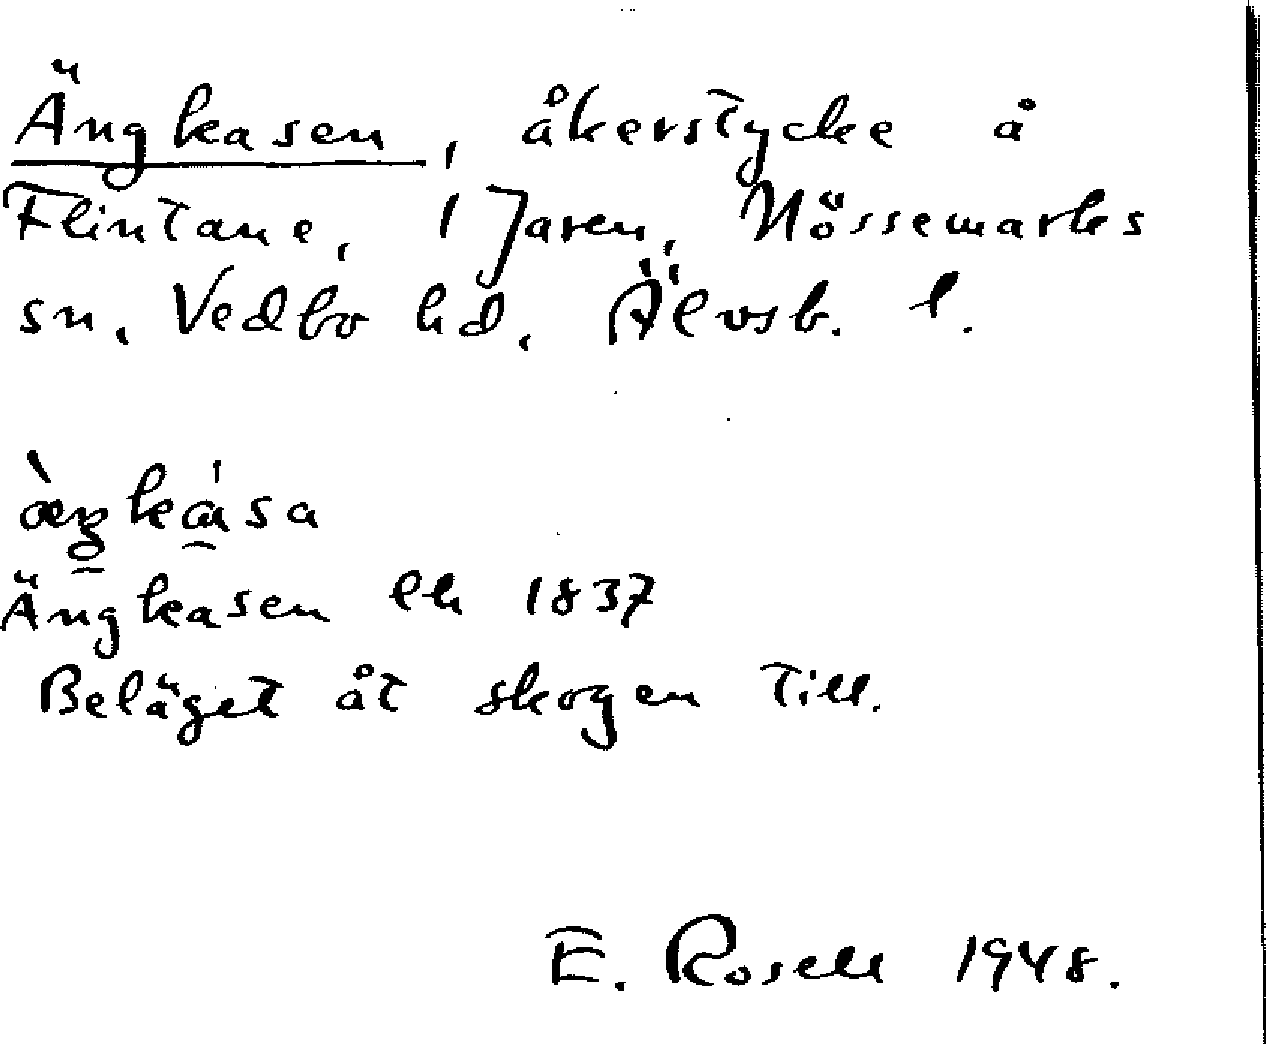 Ängkasen, åkerstycke å
Flintane, 1 Jaren, Nössemarks
sn, Vedbo hd, Älvsb. l.
æ̀ŋkása
Ängkasen lh 1837
Beläget åt skogen till.
E. Rosell 1948.